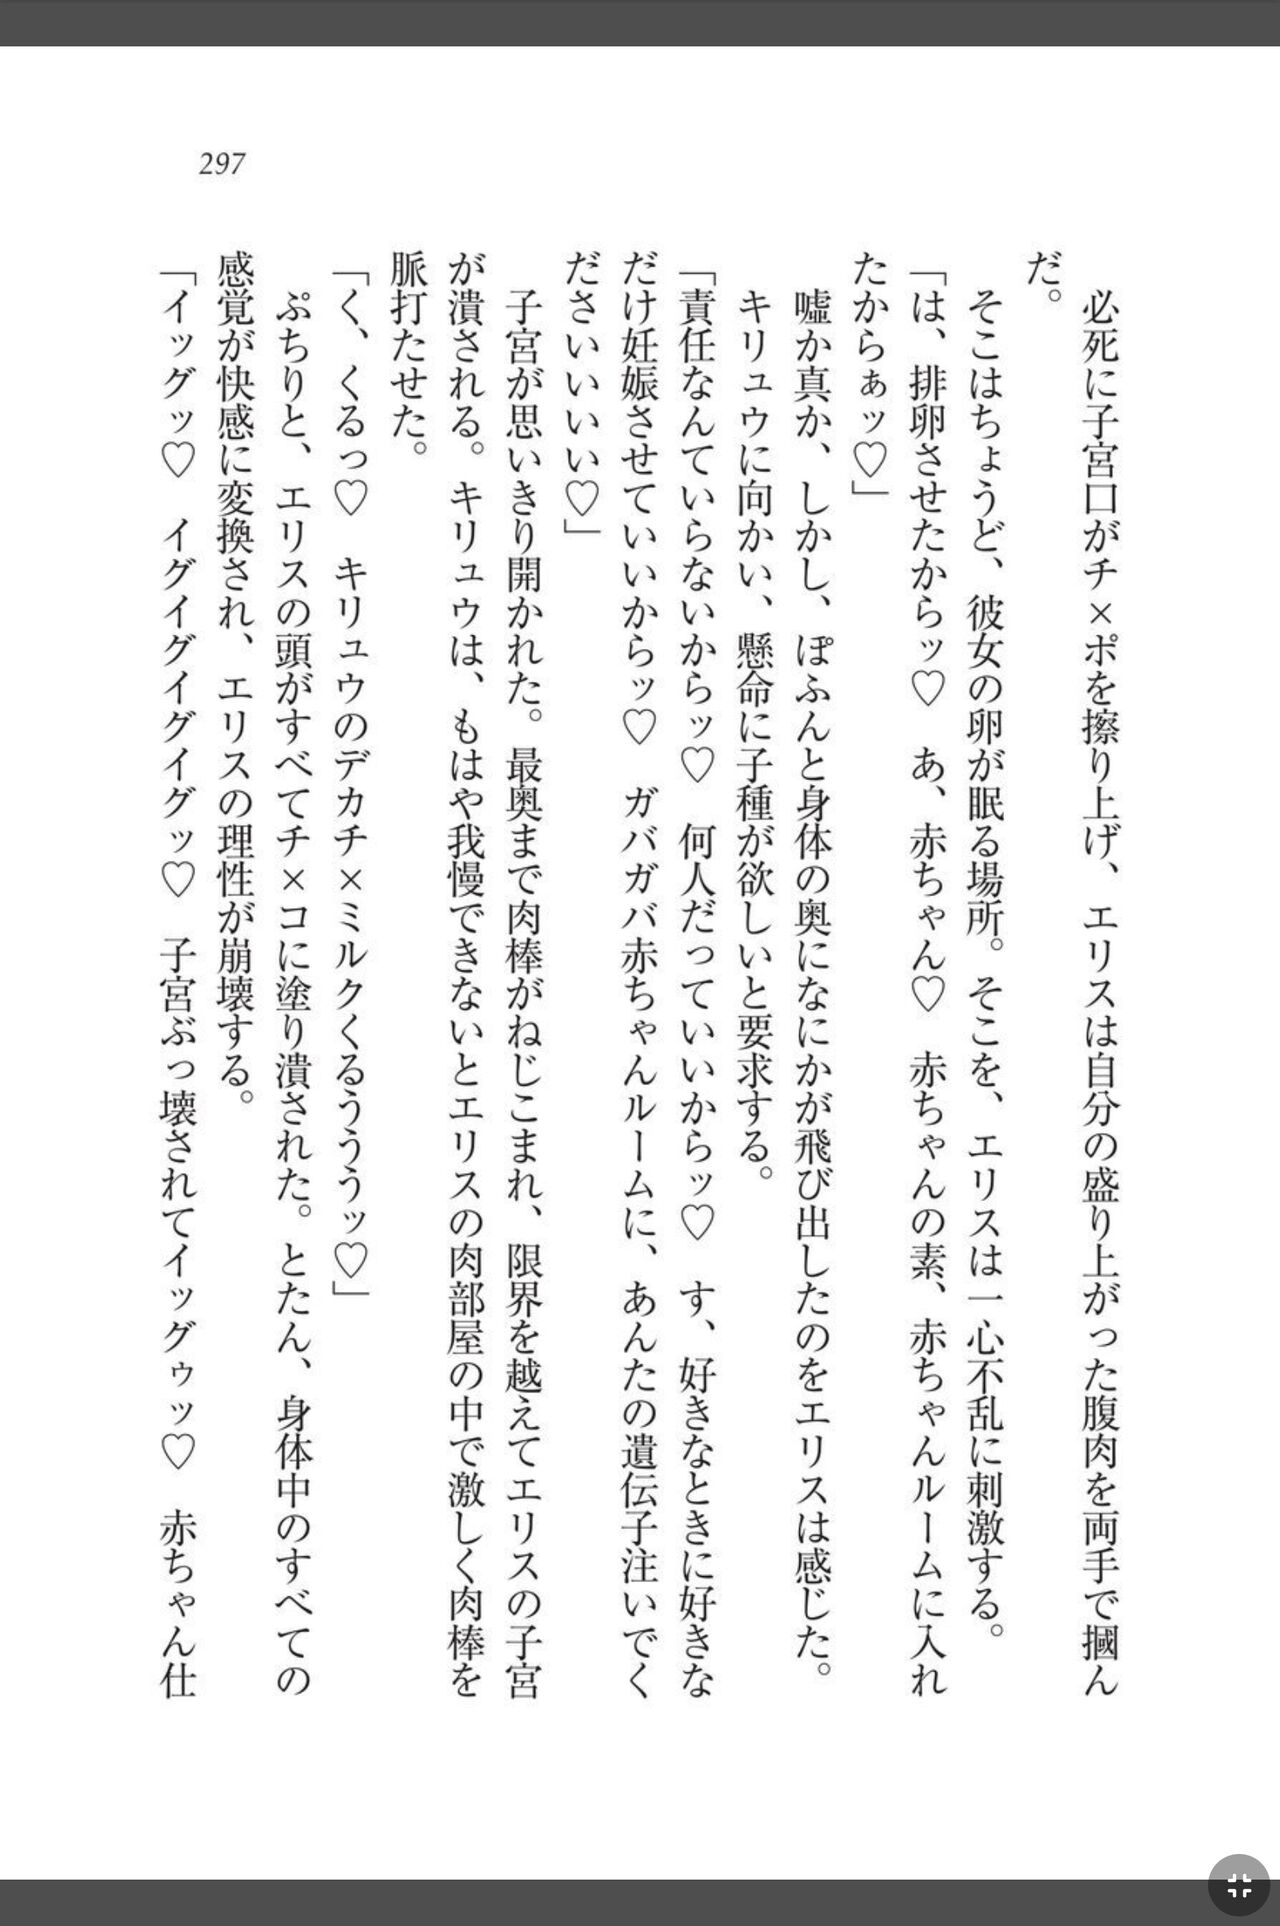 297
必死に子宮口がチ×ポを擦り上げ、エリスは自分の盛り上がった腹肉を両手で摑ん
だ。
そこはちょうど、彼女の卵が眠る場所。そこを、エリスは一心不乱に刺激する。
「は、排卵させたからッ♡　あ、赤ちゃん♡　赤ちゃんの素、赤ちゃんルームに入れ
たからぁッ♡」
嘘か真か、しかし、ぽふんと身体の奥になにかが飛び出したのをエリスは感じた。
キリュウに向かい、懸命に子種が欲しいと要求する。
「責任なんていらないからッ♡　何人だっていいからッ♡　す、好きなときに好きな
だけ妊娠させていいからッ♡　ガバガバ赤ちゃんルームに、あんたの遺伝子注いでく
ださいいいい♡」
子宮が思いきり開かれた。最奥まで肉棒がねじこまれ、限界を越えてエリスの子宮
が潰される。キリュウは、もはや我慢できないとエリスの肉部屋の中で激しく肉棒を
脈打たせた。
「く、くるっ♡　キリュウのデカチ×ミルクくるうううッ♡」
ぷちりと、エリスの頭がすべてチ×コに塗り潰された。とたん、身体中のすべての
感覚が快感に変換され、エリスの理性が崩壊する。
「イッグッ♡　イグイグイグイグッ♡　子宮ぶっ壊されてイッグゥッ♡　赤ちゃん仕